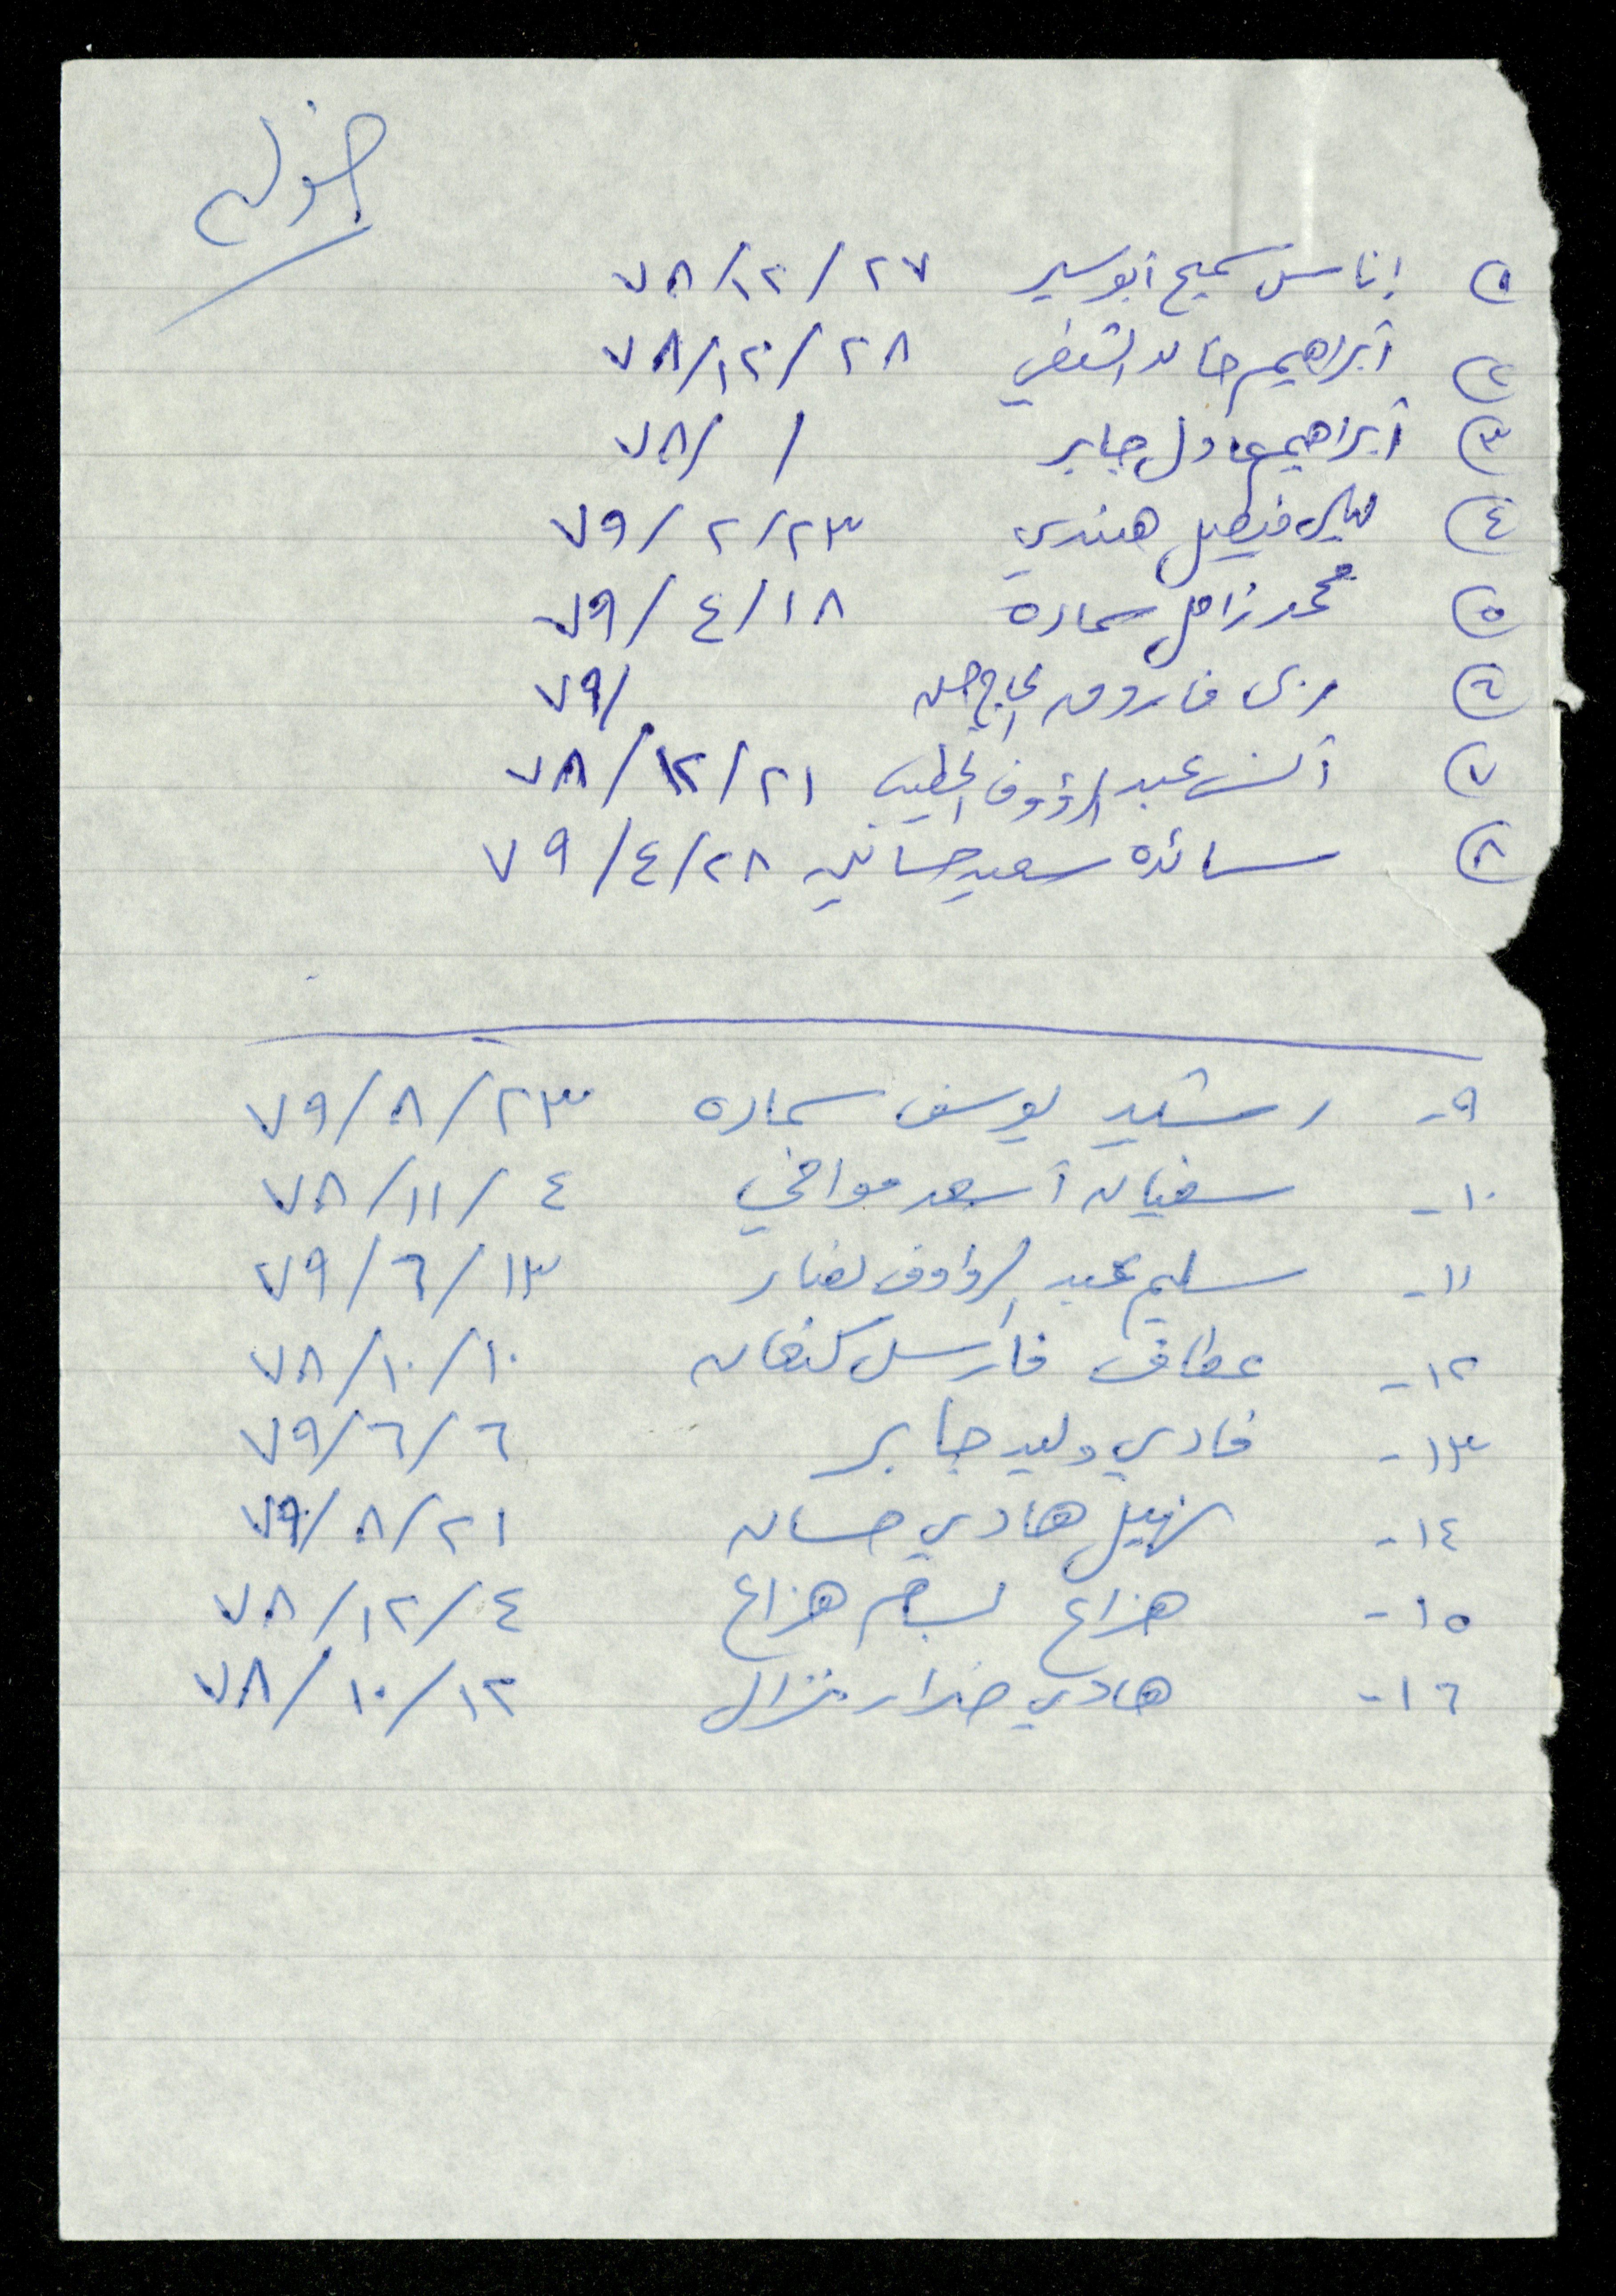 ١ إناس سميح أبو سير ٢٧/١٢/٧٨
٢ أبراهيم خالد الشنفي ٢٨/١٢/٧٨
٣ أبراهيم عادل جابر / /٧٨
٤ ليالي فيصل هندي ٢٣/٢/٧٩
٥ محمد زامل سماره ١٨/٤/٧٩
٦ ربى فاروق الحاج حسن /٧٩
٧ أنس عبد الرؤوف الخطيب ٢١/١٢/٧٨
٨ سائده سعيد حسانين ٢٨/٤/٧٩
٩- رشيد يوسف سماره ٢٣/٨/٧٩
١٠- سفيان أسعد موافي ٤/١١/٧٨
١١- سليم عبد الرؤوف نصار ١٣/٦/٧٩
١٢- عطاف فارس كنعان ١٠/١٠/٧٨
١٣- فادي وليد جابر ٦/٦/٧٩
١٤- نهيل هادي حسان ٢١/٨/٧٩
١٥- هزاع بسام هزاع ٤/١٢/٧٨
١٦- هادي ضرار نزال ١٢/١٠/٧٨